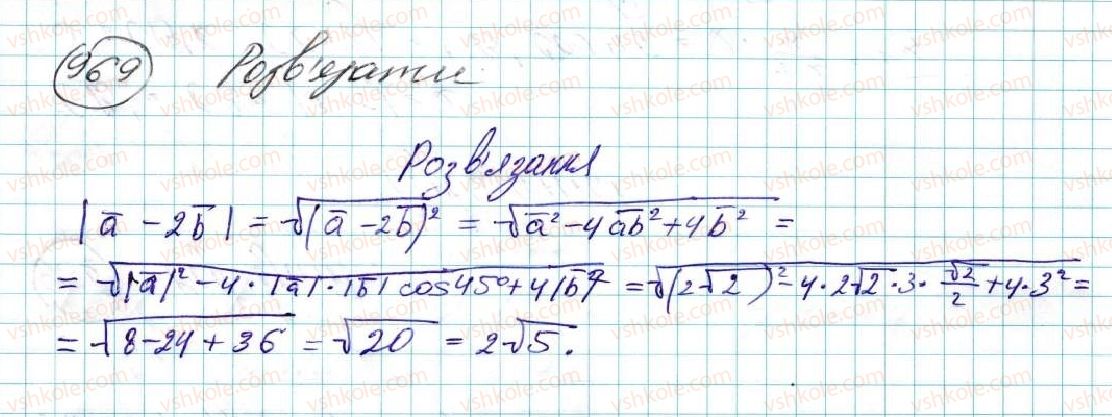 969 Розв'язати
Розв'язання
|a̅ - 2b̅| = √(a̅ - 2b̅)² = √a̅² - 4a̅b̅² + 4b̅² =
= √|a̅|² - 4·|a̅|·|b̅| cos45° + 4|b̅|² = √(2√2)² - 4·2√2·3·√2/2 + 4·3² =
= √8 - 24 + 36 = √20 = 2√5.